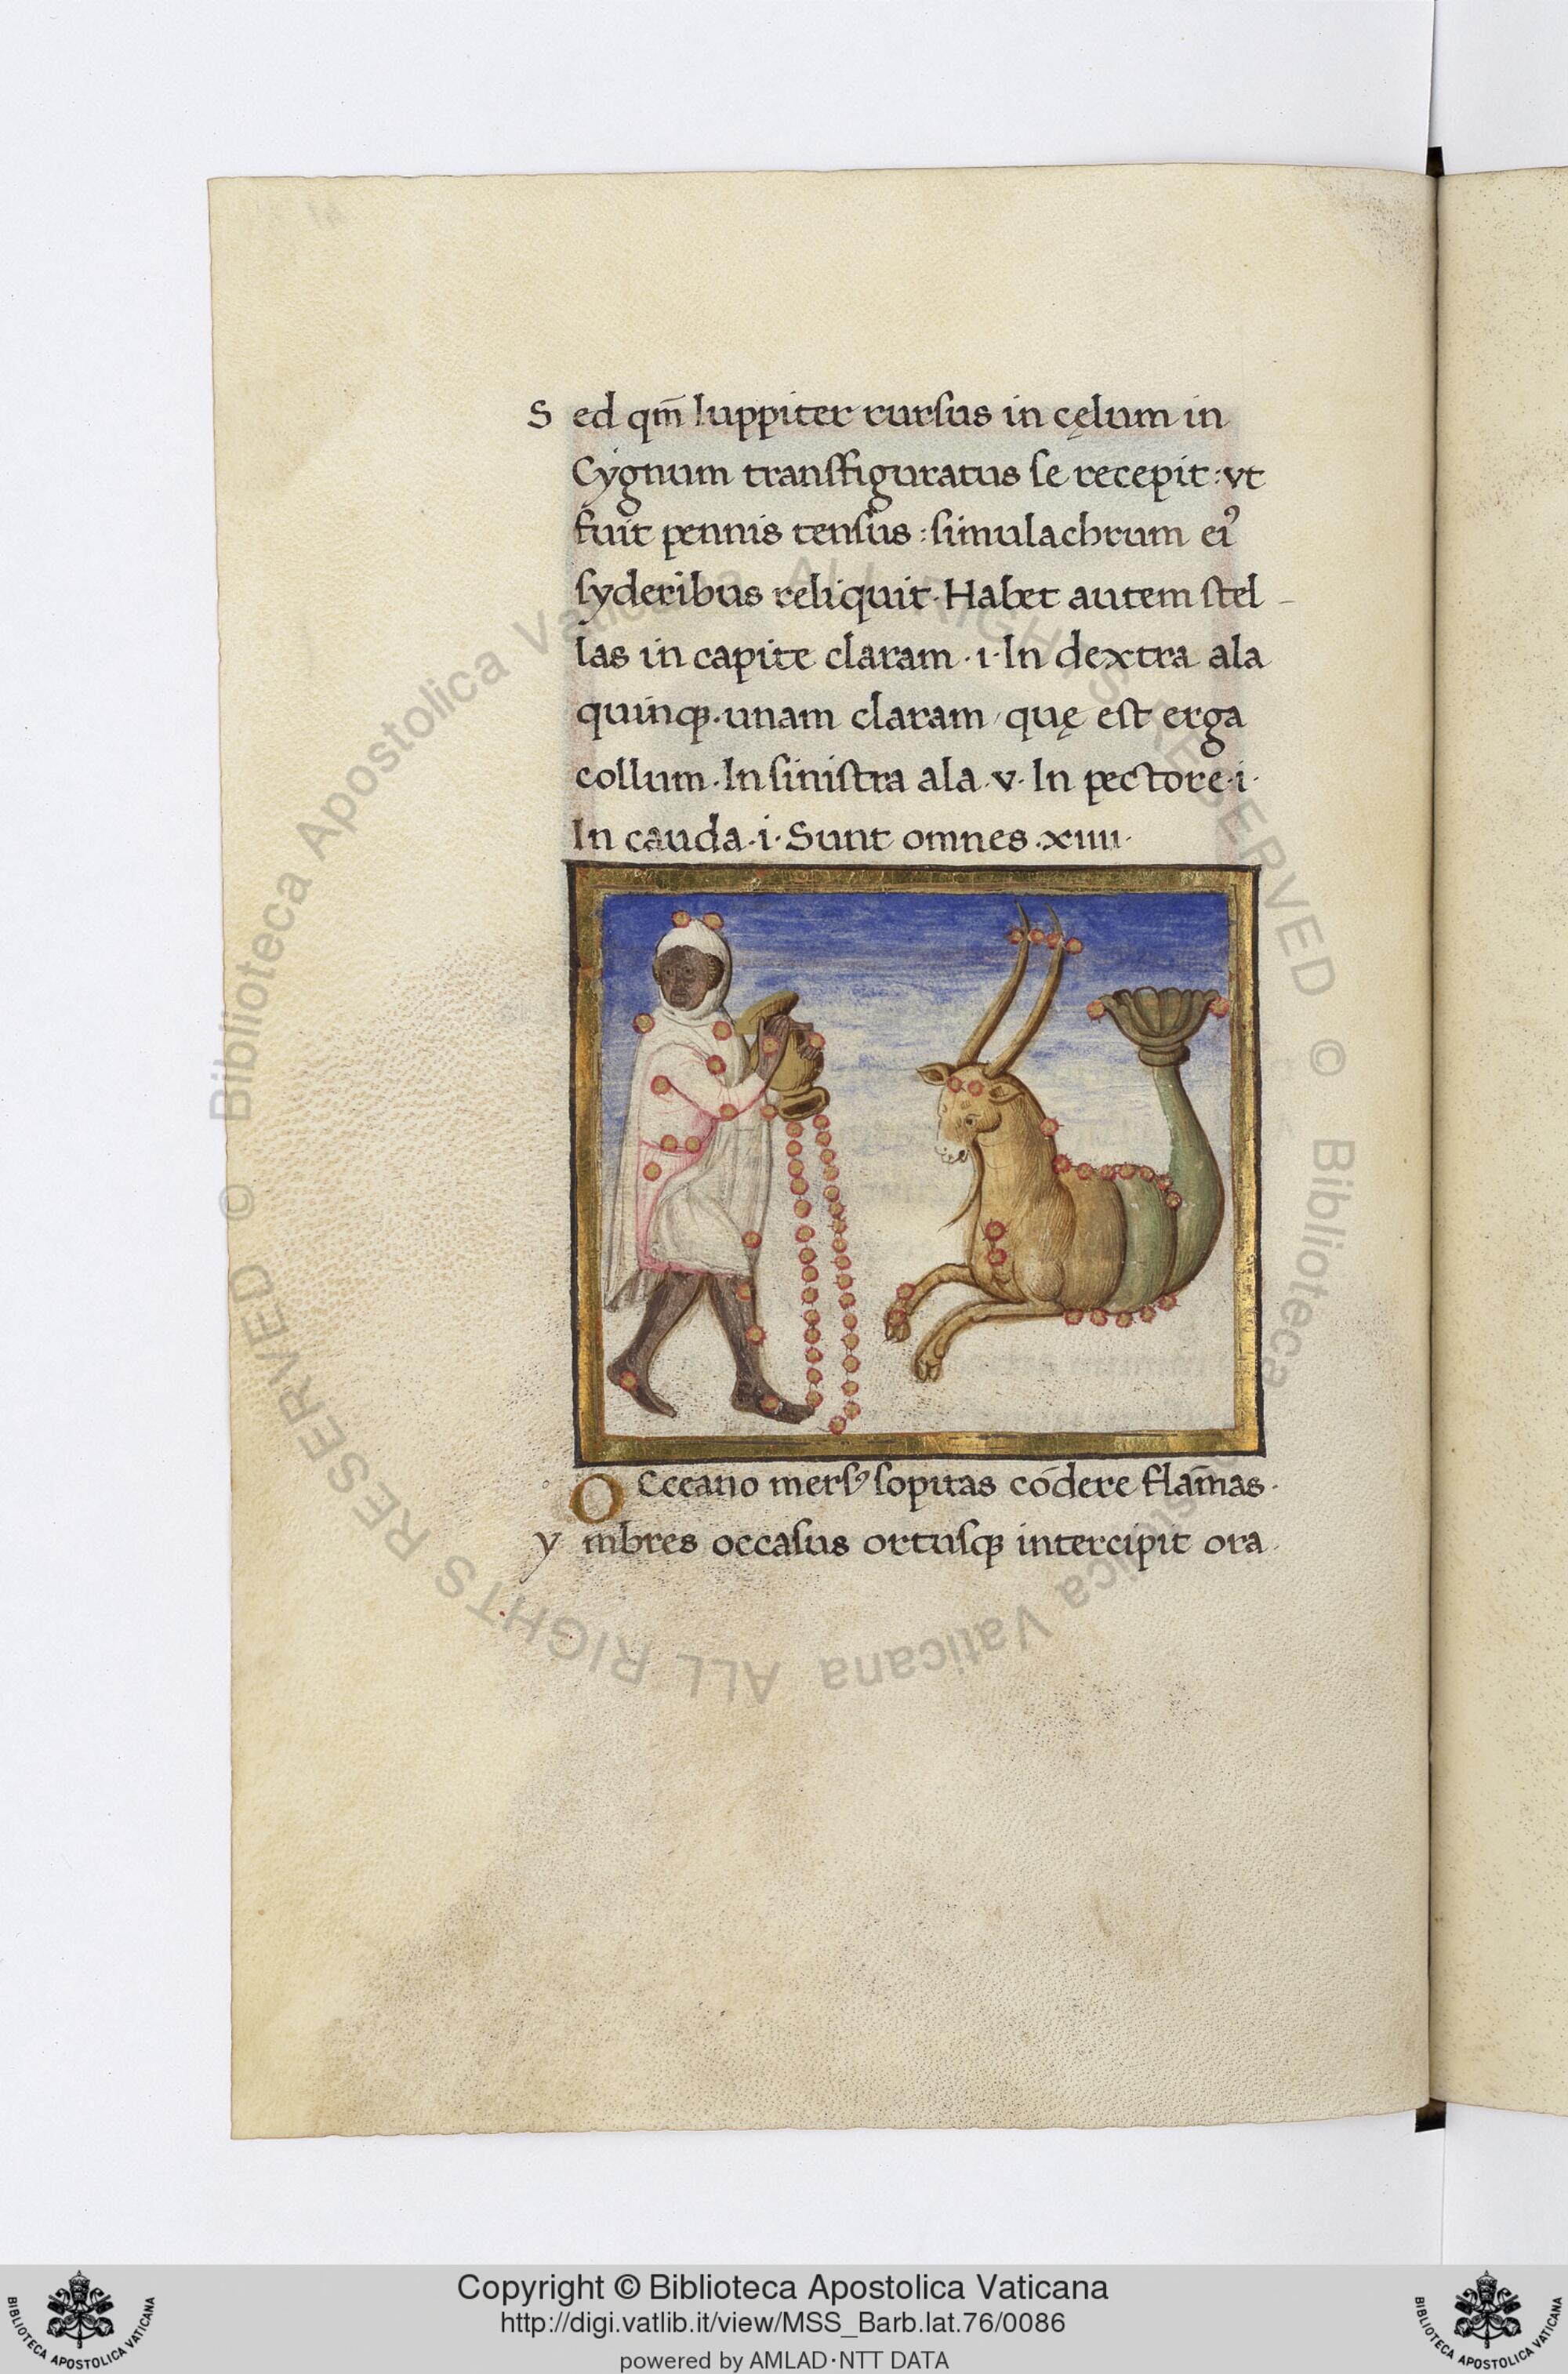 S ed qm̄ Iuppiter rursus in cęlum in
Cygnum transfiguratus se recepit: vt
fuit pennis tensus: simulachrum ei᾽
syderibus reliquit. Habet autem stel-
las in capite claram .i. In dextra ala
quinqꝫ. unam claram, quę est erga
collum. In sinistra ala .v. In pectore .i.
In cauda .i. Sunt omnes .xiiii.
O Cceano mersꝰ sopitas cōdere flam̄as.
y mbres occasus ortusqꝫ intercipit ora.
© Biblioteca Apostolica Vaticana ALL RIGHTS RESERVED © Biblioteca Apostolica Vaticana ALL RIGHTS RESERVED
Copyright © Biblioteca Apostolica Vaticana
http://digi.vatlib.it/view/MSS_Barb.lat.76/0086
powered by AMLAD·NTT DATA
BIBLIOTECA APOSTOLICA VATICANA
BIBLIOTECA APOSTOLICA VATICANA